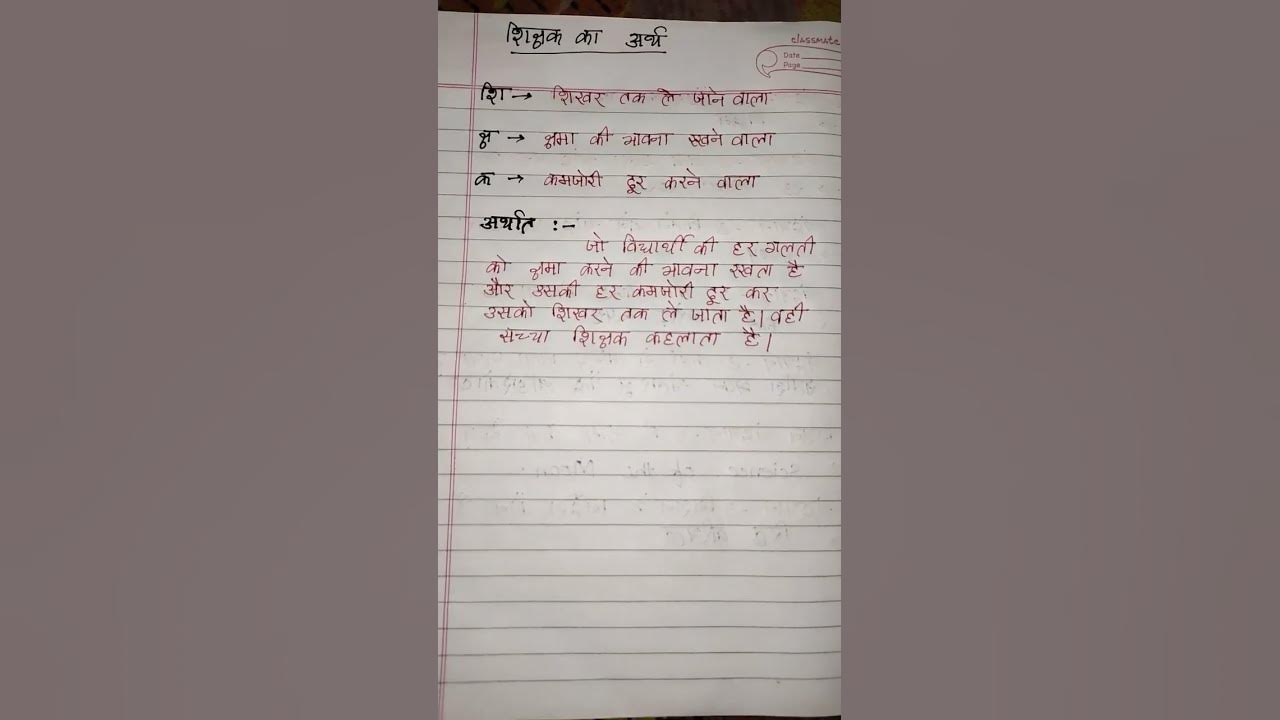 शिक्षक का अर्थ
classmate
Date
Page
शि → शिखर तक ले जाने वाला
क्ष → क्षमा की भावना रखने वाला
क → कमजोरी दूर करने वाला
अर्थात :-
जो विद्यार्थी की हर गलती
को क्षमा करने की भावना रखता है
और उसकी हर कमजोरी दूर कर
उसको शिखर तक ले जाता है। वही
सच्चा शिक्षक कहलाता है।